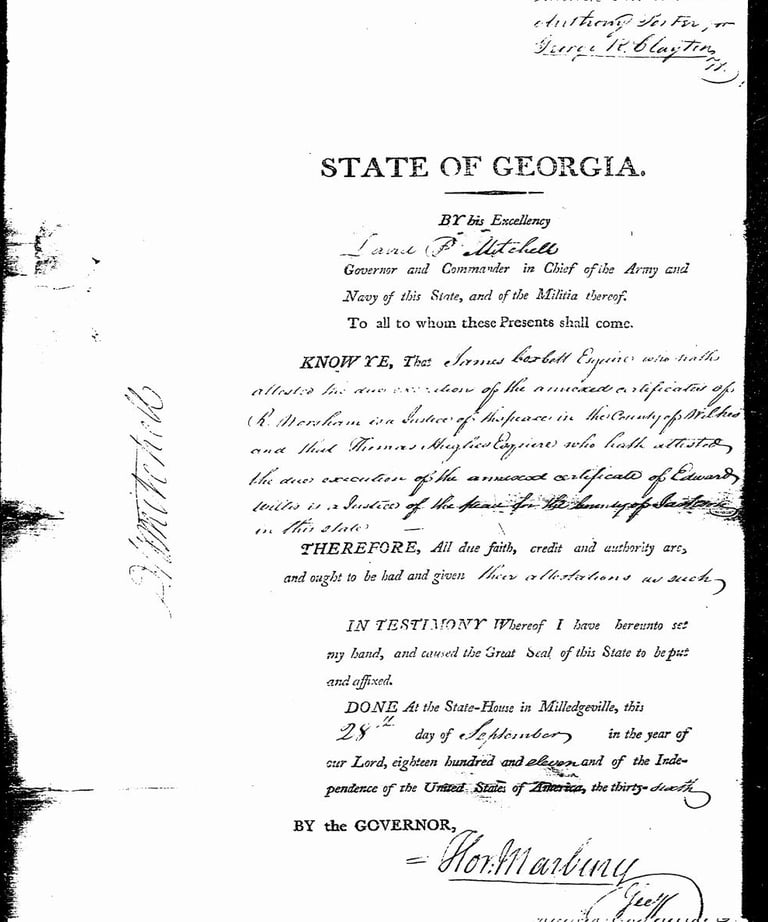 Anthony Porter, or
George R. Clayton,
STATE OF GEORGIA.
BY his Excellency
David B Mitchell
Governor and Commander in Chief of the Army and
Navy of this State, and of the Militia thereof.
To all to whom these Presents shall come.
KNOW YE, That James Corbett Esquire who hath
attested the due execution of the annexed certificates of
R. Worsham is a Justice of the peace in the County of Wilkes
and that Thomas Hughes Esquire who hath attested
the due execution of the annexed certificate of Edward
Willis is a Justice of the peace for the County of
in this state
THEREFORE, All due faith, credit and authority are,
and ought to be had and given their attestations as such
D B Mitchell
IN TESTIMONY Whereof I have hereunto set
my hand, and caused the Great Seal of this State to be put
and affixed.
DONE At the State-House in Milledgeville, this
28th day of September in the year of
our Lord, eighteen hundred and eleven and of the Inde-
pendence of the United States of America, the thirty-sixth
BY the GOVERNOR,
Hor: Marbury
Secy